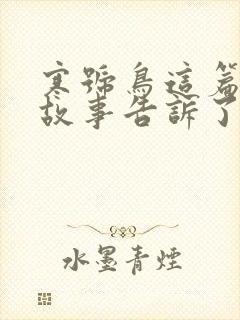 寒號鳥這篇
故事告訴了
水墨青煙